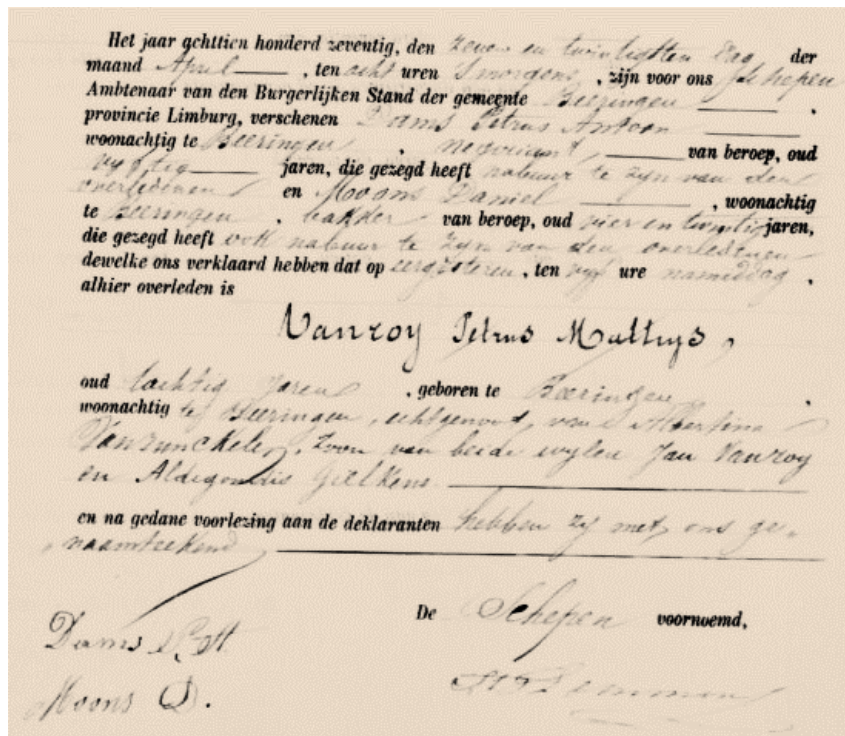 Het jaar achttien honderd zeventig, den zeven en twintigsten dag der
maand April , ten acht uren 's morgens , zijn voor ons Schepen
Ambtenaar van den Burgerlijken Stand der gemeente Beeringen ,
provincie Limburg, verschenen Dams Petrus Antoon
woonachtig te Beeringen , negociant , van beroep, oud
vyftig jaren, die gezegd heeft nabuur te zyn van den
overledenen en Moons Daniel , woonachtig
te Beeringen , bakker van beroep, oud vier en twintig jaren,
die gezegd heeft ook nabuur te zyn van den overledenen
dewelke ons verklaard hebben dat op eergisteren , ten vyf ure namiddag ,
alhier overleden is
Vanroy Petrus Mathys,
oud tachtig jaren , geboren te Beeringen ,
woonachtig te Beeringen, echtgenoot van Albertina
Vanrunckelen, zoon van beide wylen Jan Vanroy
en Aldegondis Gielkens
en na gedane voorlezing aan de deklaranten hebben zy met ons ge-
naamteekend
De Schepen voornoemd,
Dams P. A.
Moons D.